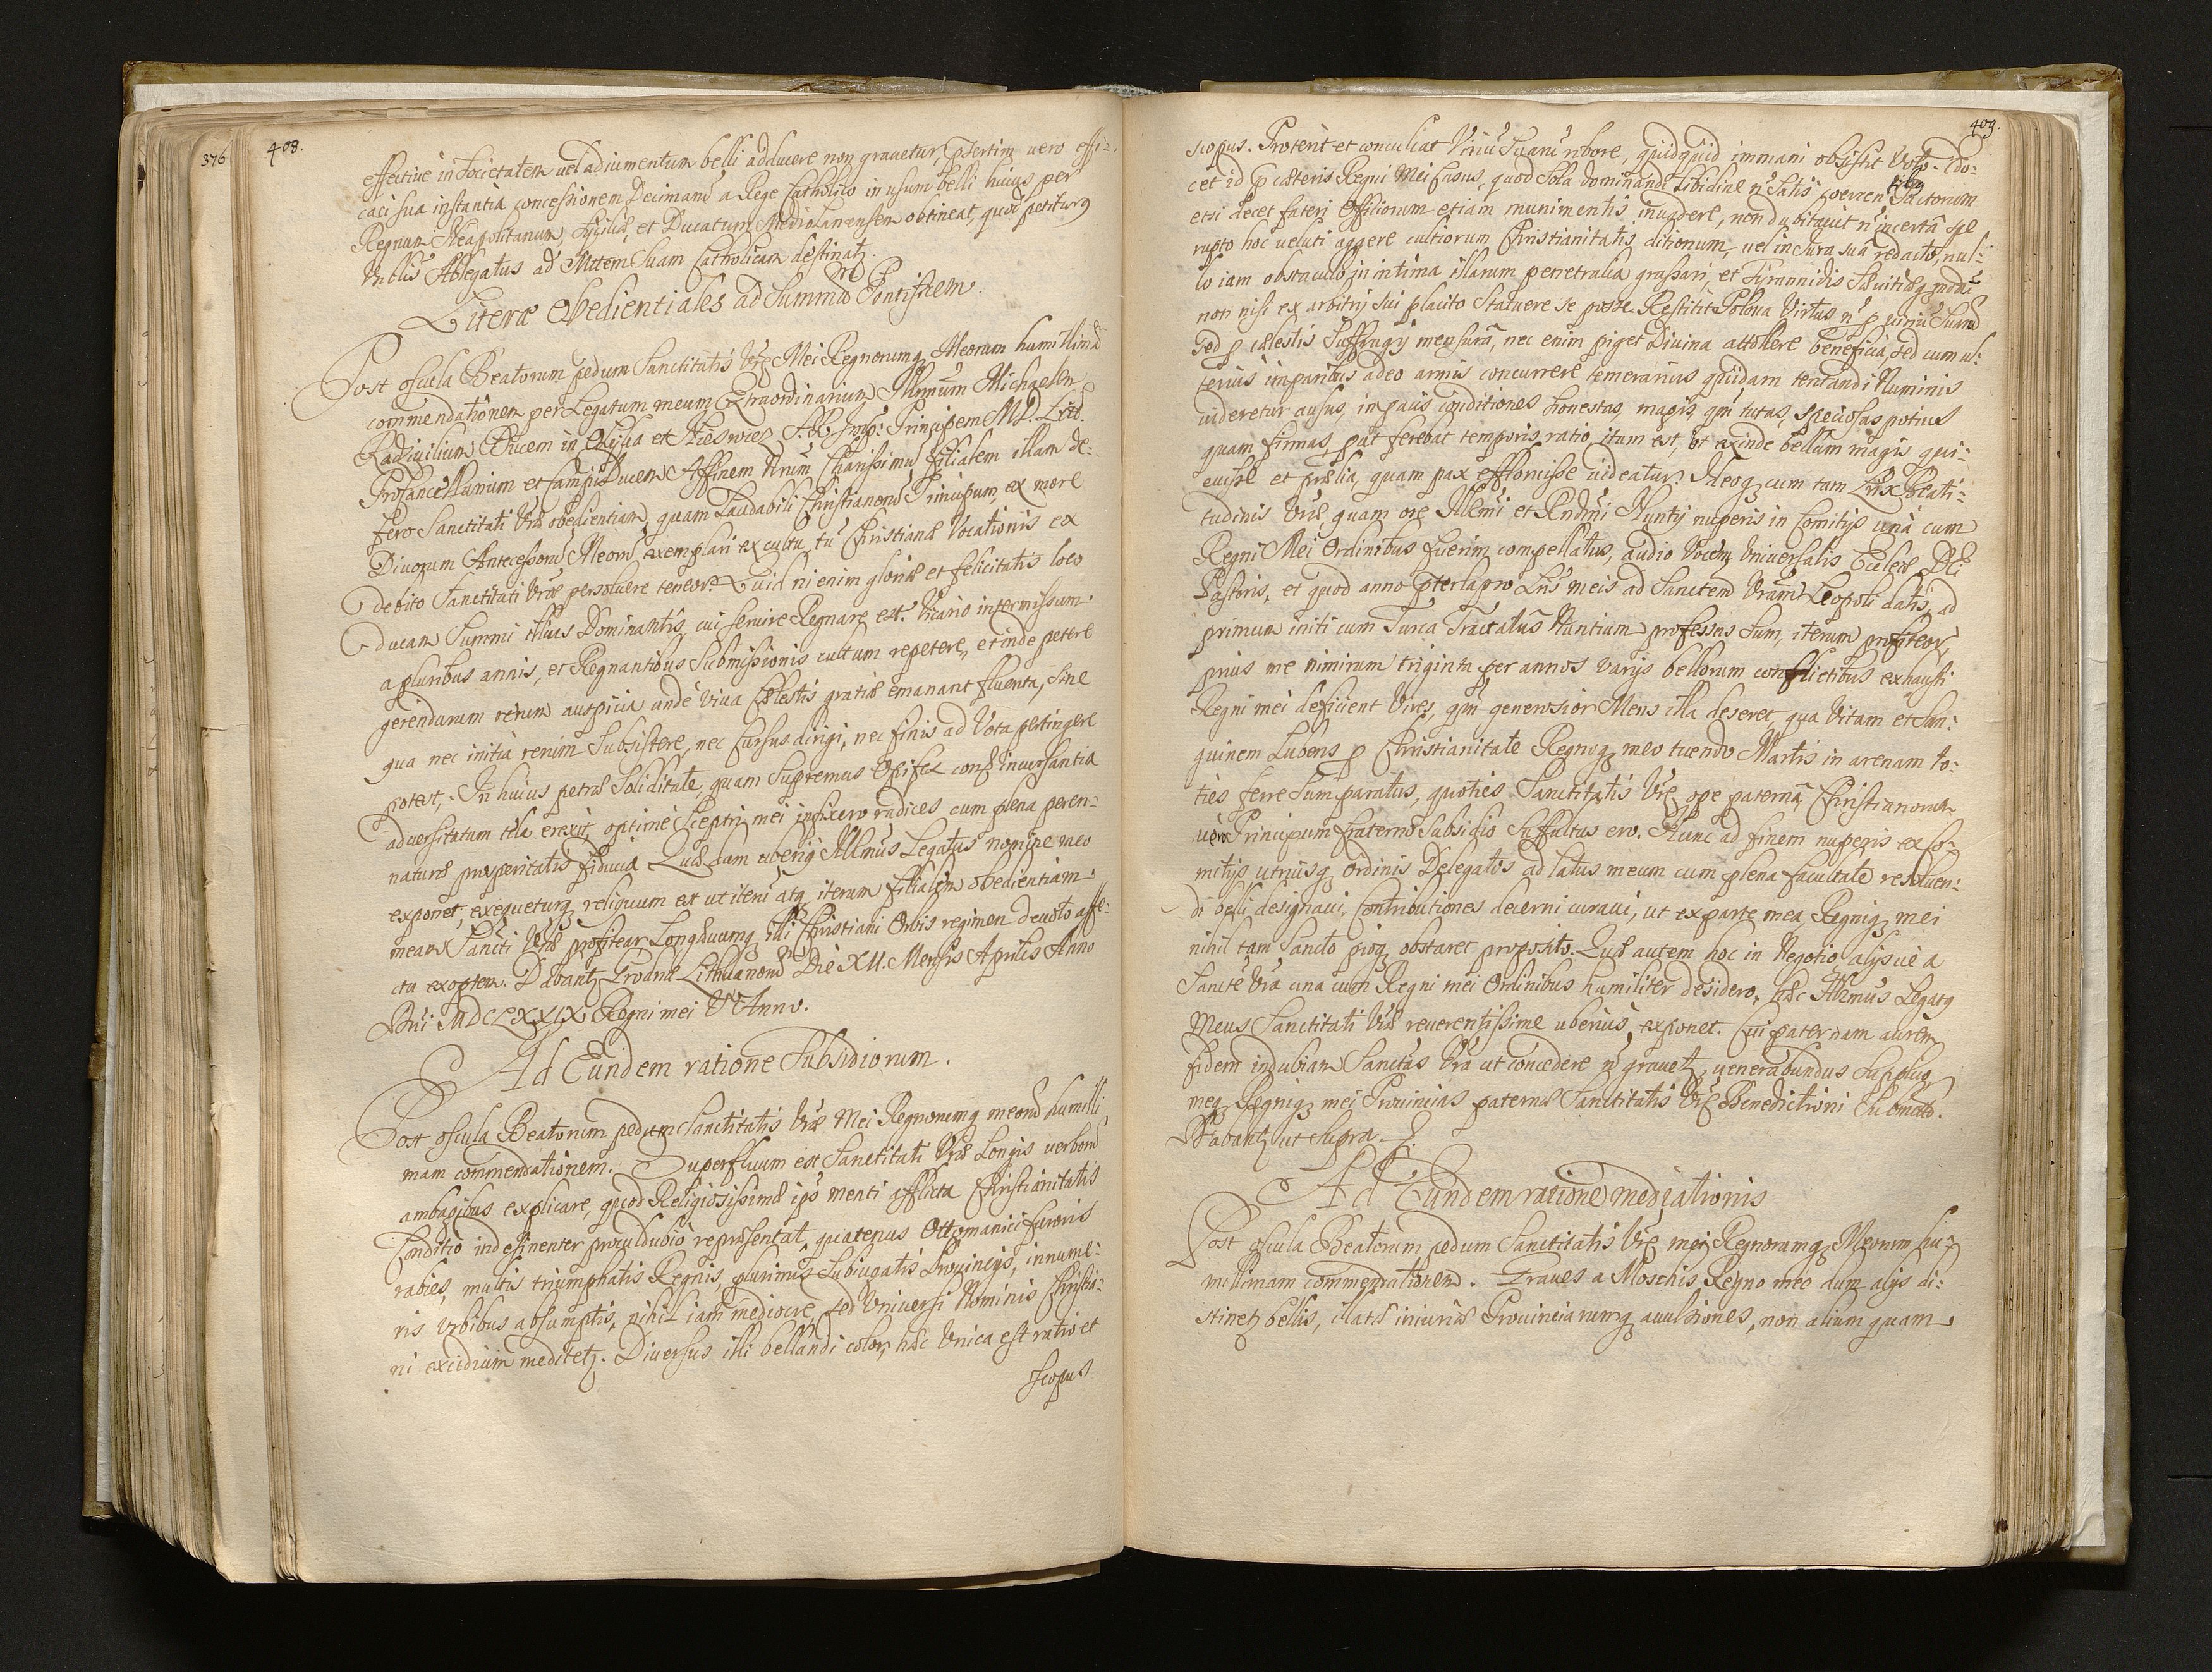 376
408.
effectiue in Societatem uel adiumentum belli adducere non grauetur, p̃sertim uero effi-
caci sua instantia concessionem Decimarũ a Rege Catholico in usum belli huius per
Regnum Neapolitanum, Syciliæ, et Ducatum Mediolanensem obtineat, quod petiturꝰ
Ablegatus ad Mttem Suam Catholicam destinatꝫ.
Literæ Obedientiales ad Summũ Pontificem.
Post oscula Beatorum pedum Sanctitatis Vrę Mei Regnorumqꝫ Meorum humillimã
commendationem per Legatum meum Extraordinarium Illmum Michaelem
Radiuilium Ducem in Olyka et Nieswiez S. R. Imp: Principem M. D. Litt.
ProCancellarium et CampiDucem Affinem Nrum Charissimũ filialem illam de-
fero Sanctitati Vræ obedientiam, quam Laudabili Christianorũ Principum, ex more
Diuorum Antecessorũ Meorũ exemplari ex cultu, tũ Christianæ Vocationis ex
debito Sanctitati Vræ persoluere teneor. Quid ni enim gloriæ et felicitatis loco
ducam Summi illius Dominantis, cui seruire Regnare est. Vicario intermissum
a pluribus annis, et Regnantibus Submissionis cultum repetere, et inde petere
gerendarum rerum auspicia unde viua Cælestis gratiæ emanant fluenta, sine
qua nec initia rerum Subsistere, nec Cursus dirigi, nec finis ad Vota pertingere
potest. In huius petræ Soliditate, quam Supremus Opifex contra incursantia
aduersitatum tela erexit, optime Sceptri mei infixero radices cum plena peren-
naturæ prosperitatis fiducia Quæ dum uberiꝰ Illmus Legatus nomine meo
exponet, exequeturqꝫ, reliquum est ut iterũ atqꝫ iterum filialem obedientiam
meam Sancti Vræ profitear Longæuumqꝫ illi Christiani Orbis regimen deuoto affe-
ctu exoptem. Dabantꝫ Grodnæ Lithuanorũ Die XII. Mensis Aprilis Anno
Dni MDCLXXIX Regni mei V Anno.
Ad Eundem ratione Subsidiorum.
Post oscula Beatorum pedum Sanctitatis Vræ Mei Regnorumqꝫ meorũ humilli
mam commendationem. Superfluum est Sanctitati Vræ Longis uerborũ
ambagibus explicare, quod Religiosissimæ ipsꝰ menti afflicta Christianitatis
Conditio indesinenter proculdubio repræsentat, quatenus Ottomanici furoris
rabies, multis triumphatis Regnis, plurimis Subiugatis Prouincijs, innume-
ris Vrbibus absumptis, nihil iam mediocre, sed Vniuersi Nominis Christia-
ni excidium meditetꝫ. Diuersus illi bellandi color, hæc Vnica est ratio et
scopus
409.
scopus. Proterit et conculcat Viriũ Suarũ robore, quidquid immani obsistit Voto. Edo-
cet id p̃ cæteris Regni Mei Casus, quod Sola dominandi Libidine nõ Satis coercentibꝰ Pactorum
etsi decet fateri Effiliorum etiam munimentis inuadere, non dubitauit nõ incertã spe
rupto hoc ueluti aggere cultiorum Christianitatis ditionum, uel in Iura sua redacto, nul-
lo iam obstaculo in intima illarum penetralia grassari, et Tyrannidis Sæuitięqꝫ
non nisi ex arbitrij sui placito Statuere se posse. Restitit Polona Virtus nõ p uiriũ Suarũ
sed p cælestis Suffragij mensurã, nec enim piget Diuina attollere beneficia, sed cum ul-
terius imparibus adeo armis concurrere temerarius quidam tentandi Numinis
uideretur ausus, in pacis conditiones honestas, magis qm̃ tutas, speciosas potius
quam firmas, put ferebat temporis ratio itum est, ut exinde bellum magis qui-
euisse et prælia, quam pax effloruisse uideatur. Ideoqꝫ cum tam Lris Beati-
tudinis Vræ, quam ore Illmi et Rndmi Nuntij nuperis in Comitijs unà cum
Regni Mei Ordinibus fuerim compellatus, audio Vocem Vniuersalis Eccleæ Dei
Pastoris, et quod anno p̃terlapso Lris meis ad Sanctem Vram Leopoli datis, ad
primum initi cum Turca Tractatus Nuntium professus sum, iterum profiteor,
prius me nimirum triginta per annos varijs bellorum conflictibus exhausti
Regni mei deficient Vires, qm̃ generosior Mens illa deseret, qua Vitam et San-
guinem Lubens p Christianitate Regnoqꝫ meo tuendo Martis in arenam to-
ties ferre sum paratus, quoties Sanctitatis Vrę ope paternã, Christianorum
uero Principum fraterno Subsidio Suffultus ero. Hunc ad finem nuperis ex Co-
mitijs utriusqꝫ Ordinis Delegatis ad latus meum cum plena facultate resoluen-
di belli designaui, Contributiones decerni curaui, ut ex parte mea Regniqꝫ mei
nihil tam Sancto pioqꝫ obstaret proposito. Quæ autem hoc in Negotio alijsue a
Sancte Vra una cum Regni mei Ordinibus humiliter desidero, hæc Illmus Legatꝰ
Meus Sanctitati Vræ reuerentissime uberius exponet. Cui paternam aurem
fidem indubiam Sanctas Vra ut concedere nõ grauetꝫ, uenerabundus Supplico,
meqꝫ Regniqꝫ mei Prouincias paternæ Sanctitatis Vrę Benedictioni Submitto.
Dabantꝫ ut supra.
Ad Eundem ratione mediationis
Post oscula Beatorum pedum Sanctitatis Vrę mei Regnorumqꝫ Meorum hu-
millimam commendationem. Graues a Moschis Regno meo dum alijs di-
stinetꝫ bellis, illatæ iniuriæ Prouinciarumqꝫ auulsiones, non alium quam